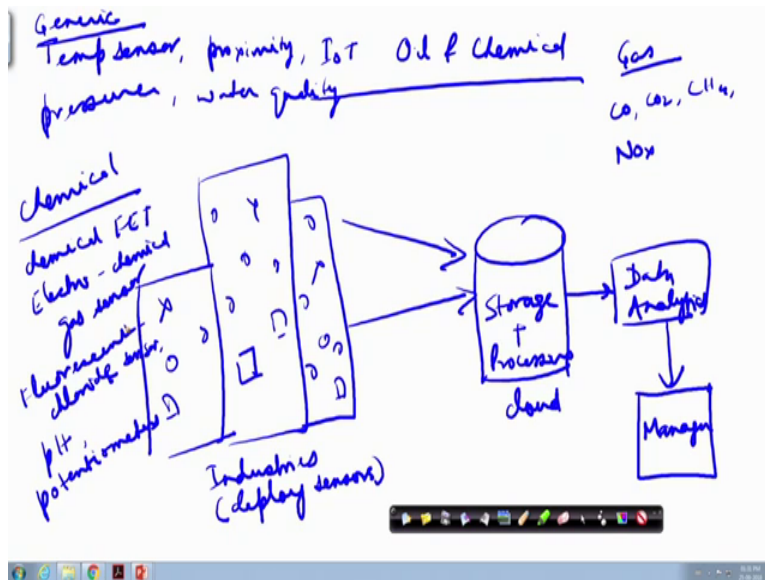 Generic
Temp sensor, proximity, IoT Oil & Chemical
pressure, water quality
Gas
CO, CO2, CH4,
NOx
Chemical
chemical FET
Electro-chemical
gas sensor
Fluorescent
chloride sensor,
pH,
potentiometric
Industries
(deploy sensors)
Storage
+
Processing
cloud
Data
Analytics
Manager